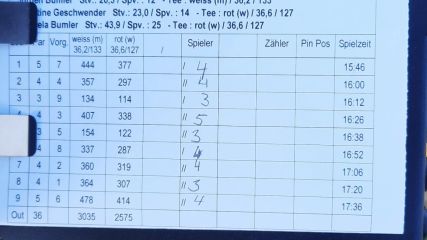 Bumler Stv.: 26,3 / Spv. : 12 - Tee : weiss (m) / 36,2 / 133
tine Geschwender Stv.: 23,0 / Spv. : 14 - Tee : rot (w) / 36,6 / 127
ela Bumler Stv.: 43,9 / Spv. : 25 - Tee : rot (w) / 36,6 / 127
Par Vorg. weiss (m) 36,2/133 rot (w) 36,6/127 / Spieler Zähler Pin Pos Spielzeit
1 5 7 444 377 / 4 15:46
2 4 4 357 297 // 4 16:00
3 3 9 134 114 / 3 16:12
4 3 407 338 // 5 16:26
3 5 154 122 // 3 16:38
4 8 337 287 / 4 16:52
7 4 2 360 319 // 4 17:06
8 4 1 364 307 // 3 17:20
9 5 6 478 414 // 4 17:36
Out 36 3035 2575